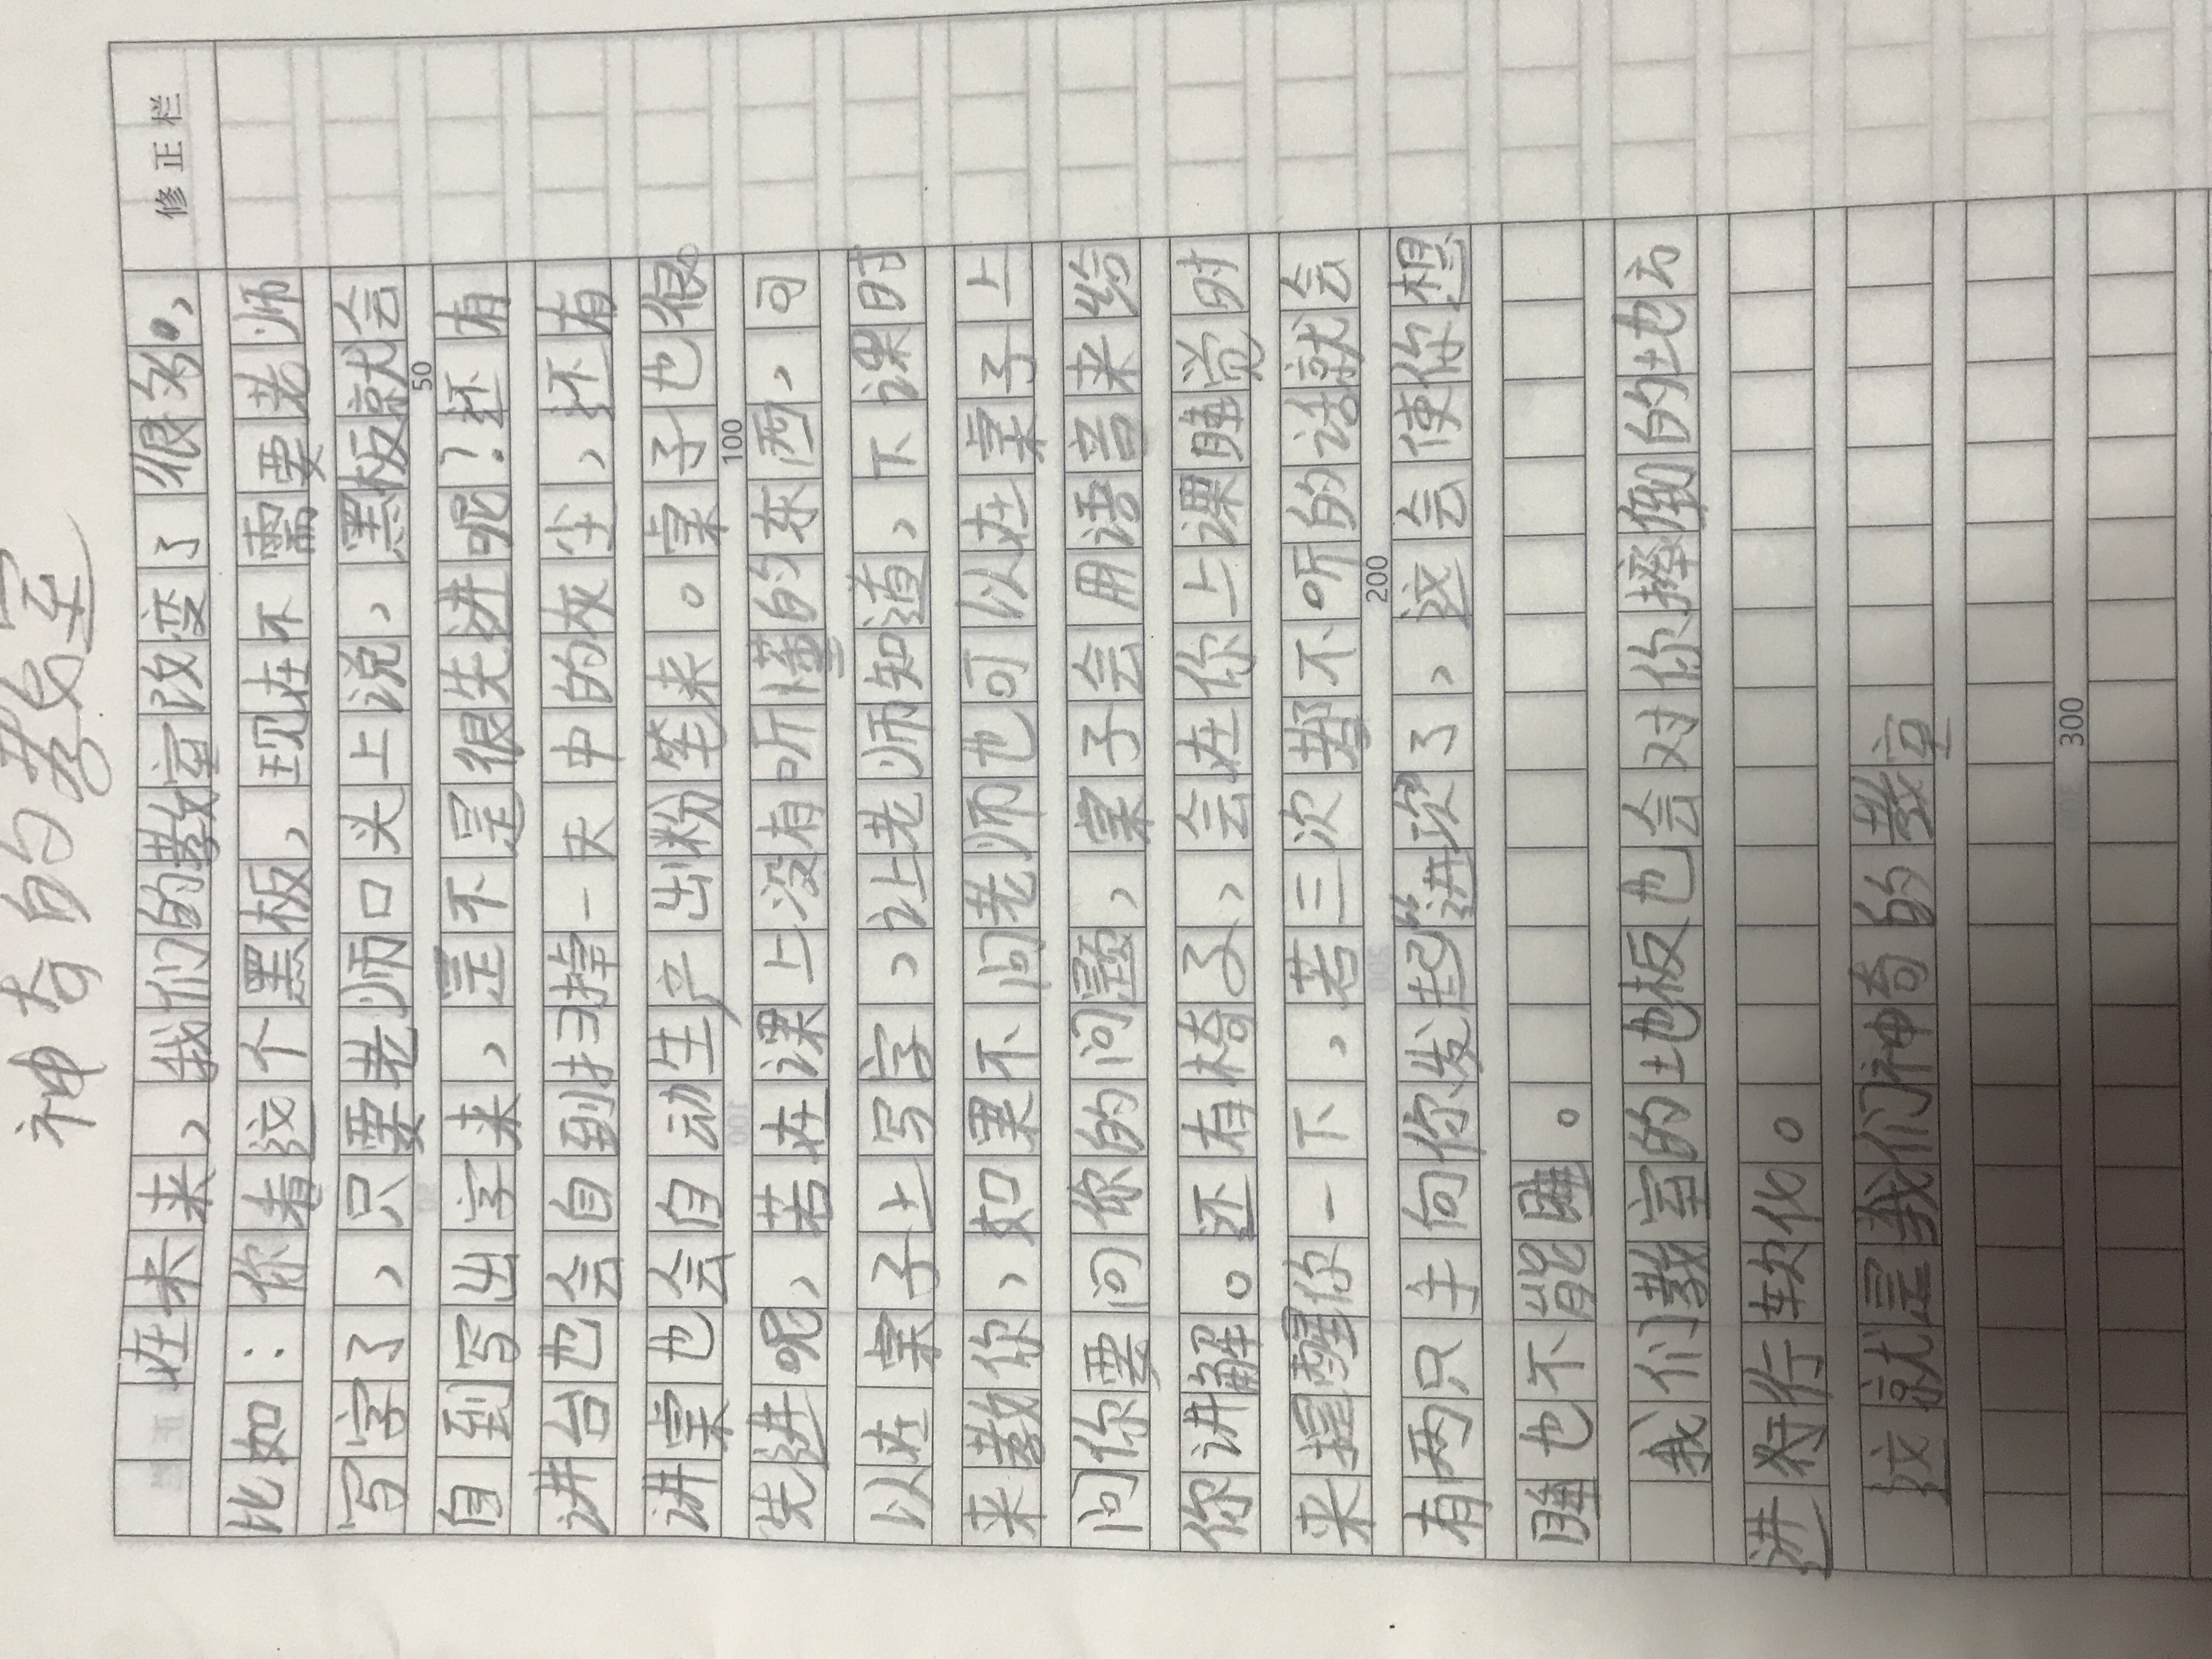 神奇的教室
修正栏
在未来，我们的教室改变了很多，
比如：你看这个黑板，现在不需要老师
写字了，只要老师口头上说，黑板就会
50
自到写出字来，是不是很先进呢？还有
讲台也会自到扫掉一天中的灰尘，还有
讲桌也会自动生产出粉笔来。桌子也很
100
先进呢，若在课上没有听懂的东西，可
以在桌子上写字，让老师知道，下课时
来教你，如果不问老师也可以在桌子上
问你要问你的问题，桌子会用语言来给
你讲解。还有椅子，会在你上课睡觉时
来提醒你一下，若三次都不听的话就会
200
有两只手向你发起进攻了，这会使你想
睡也不能睡。
我们教室的地板也会对你摔倒的地方
进行软化。
这就是我们神奇的教室
300